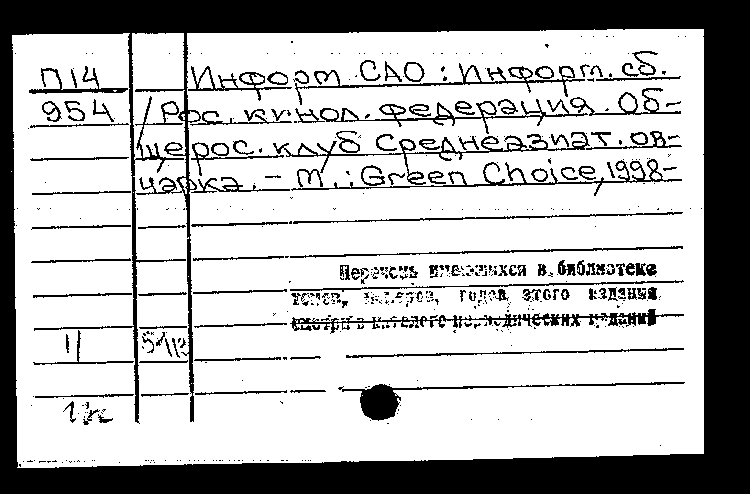 П14 Информ САО : Информ. сб.
954 / Рос. кинол. федерация. Об-
щерос. клуб Среднеазиат. ов-
чарка. - М. : Green Choice, 1998-
Перечень имеющихся в библиотеке
томов, номеров, годов этого издания
смотри в каталоге периодических изданий
11